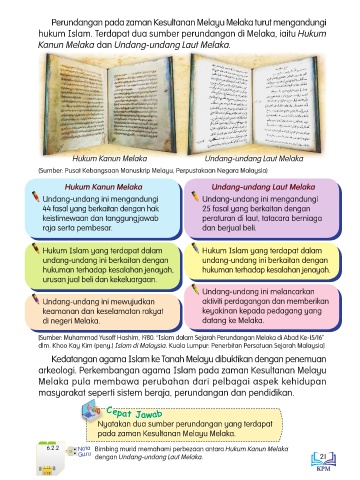 Perundangan pada zaman Kesultanan Melayu Melaka turut mengandungi
hukum Islam. Terdapat dua sumber perundangan di Melaka, iaitu Hukum
Kanun Melaka dan Undang-undang Laut Melaka.
Hukum Kanun Melaka
Undang-undang Laut Melaka
(Sumber: Pusat Kebangsaan Manuskrip Melayu, Perpustakaan Negara Malaysia)
Hukum Kanun Melaka
Undang-undang ini mengandungi
44 fasal yang berkaitan dengan hak
keistimewaan dan tanggungjawab
raja serta pembesar.
Hukum Islam yang terdapat dalam
undang-undang ini berkaitan dengan
hukuman terhadap kesalahan jenayah,
urusan jual beli dan kekeluargaan.
Undang-undang ini mewujudkan
keamanan dan keselamatan rakyat
di negeri Melaka.
Undang-undang Laut Melaka
Undang-undang ini mengandungi
25 fasal yang berkaitan dengan
peraturan di laut, tatacara berniaga
dan berjual beli.
Hukum Islam yang terdapat dalam
undang-undang ini berkaitan dengan
hukuman terhadap kesalahan jenayah.
Undang-undang ini melancarkan
aktiviti perdagangan dan memberikan
keyakinan kepada pedagang yang
datang ke Melaka.
(Sumber: Muhammad Yusoff Hashim, 1980. "Islam dalam Sejarah Perundangan Melaka di Abad Ke-15/16"
dlm. Khoo Kay Kim (peny.) Islam di Malaysia. Kuala Lumpur: Penerbitan Persatuan Sejarah Malaysia)
Kedatangan agama Islam ke Tanah Melayu dibuktikan dengan penemuan
arkeologi. Perkembangan agama Islam pada zaman Kesultanan Melayu
Melaka pula membawa perubahan dari pelbagai aspek kehidupan
masyarakat seperti sistem beraja, perundangan dan pendidikan.
Cepat Jawab
Nyatakan dua sumber perundangan yang terdapat
pada zaman Kesultanan Melayu Melaka.
6.2.2
Nota
Guru
Bimbing murid memahami perbezaan antara Hukum Kanun Melaka
dengan Undang-undang Laut Melaka.
21
KPM